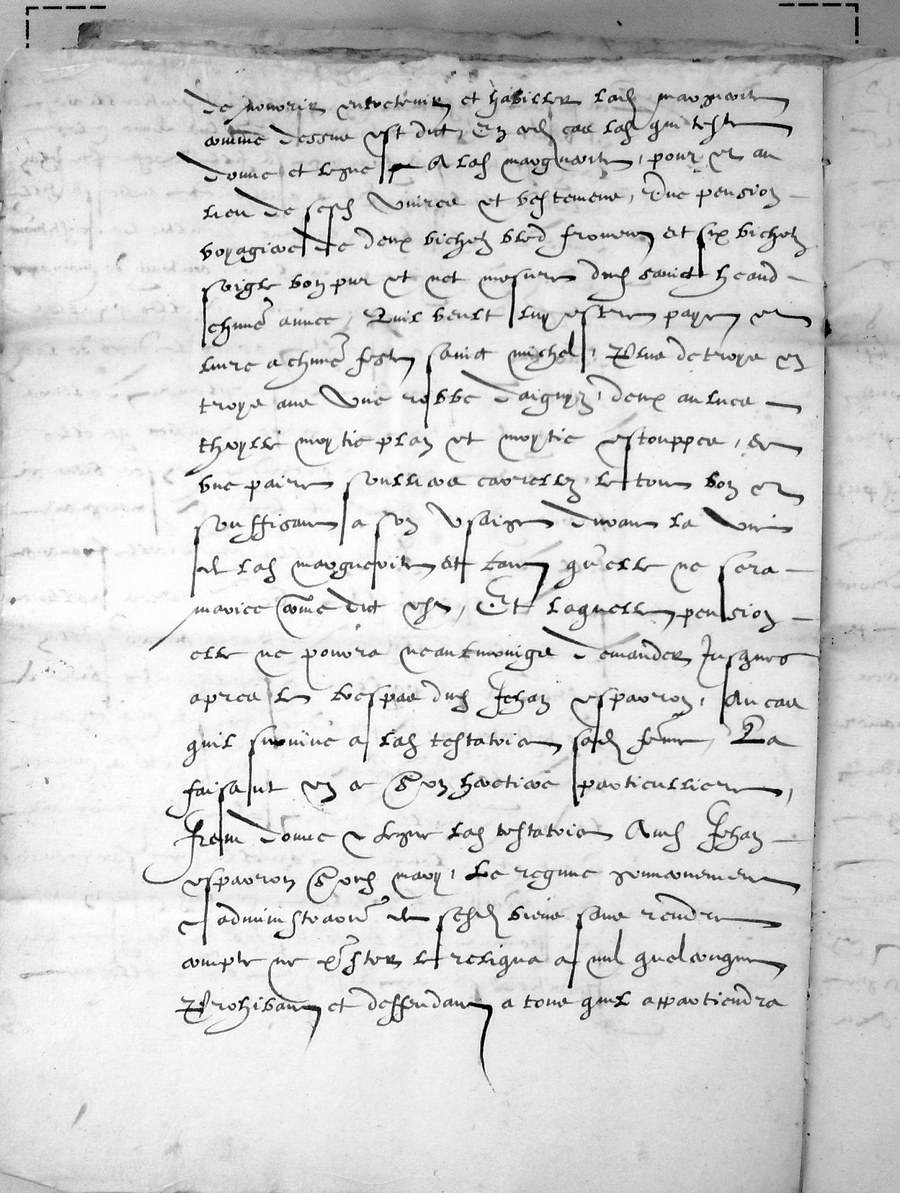 de nourrir entretenir et habiller lad marguerite
comme dessus est dict, En ced cas lad qui teste
donne et legue a lad marguerite, pour et au
lieu de sesd vivres et vestemens, Une pension
de deux bichetz bled froment et six bichetz
soigle bon pur et net mesure dud sainct heand
chune annee, Quil veult luy estre paye et
livre a chune feste sainct michel, Plus de troys en
troys ans Une robbe deux aulnes
theylle moytie plain et moytie estouppes, et
une paire soulliers le tout bon et
souffisant a son usaige durant la vie
de lad marguerite et tant qu'elle ne sera
mariee come dict est, Et laquelle pension
elle ne pourra neantmoings demander Jusques
apres le trespas dud Jehan esparron, Au cas
quil survive a lad testatrix sad feme, La
faisant en ce son heritiere particulliere,
Item donne et legue lad testatrix Aud Jehan
esparron sond mary, Le regime gouvernement
et administraon de sesd biens sans rendre
compte ne prester le reliqua a nul quelconque
Prohibant et deffendant a tous quil appartiendra